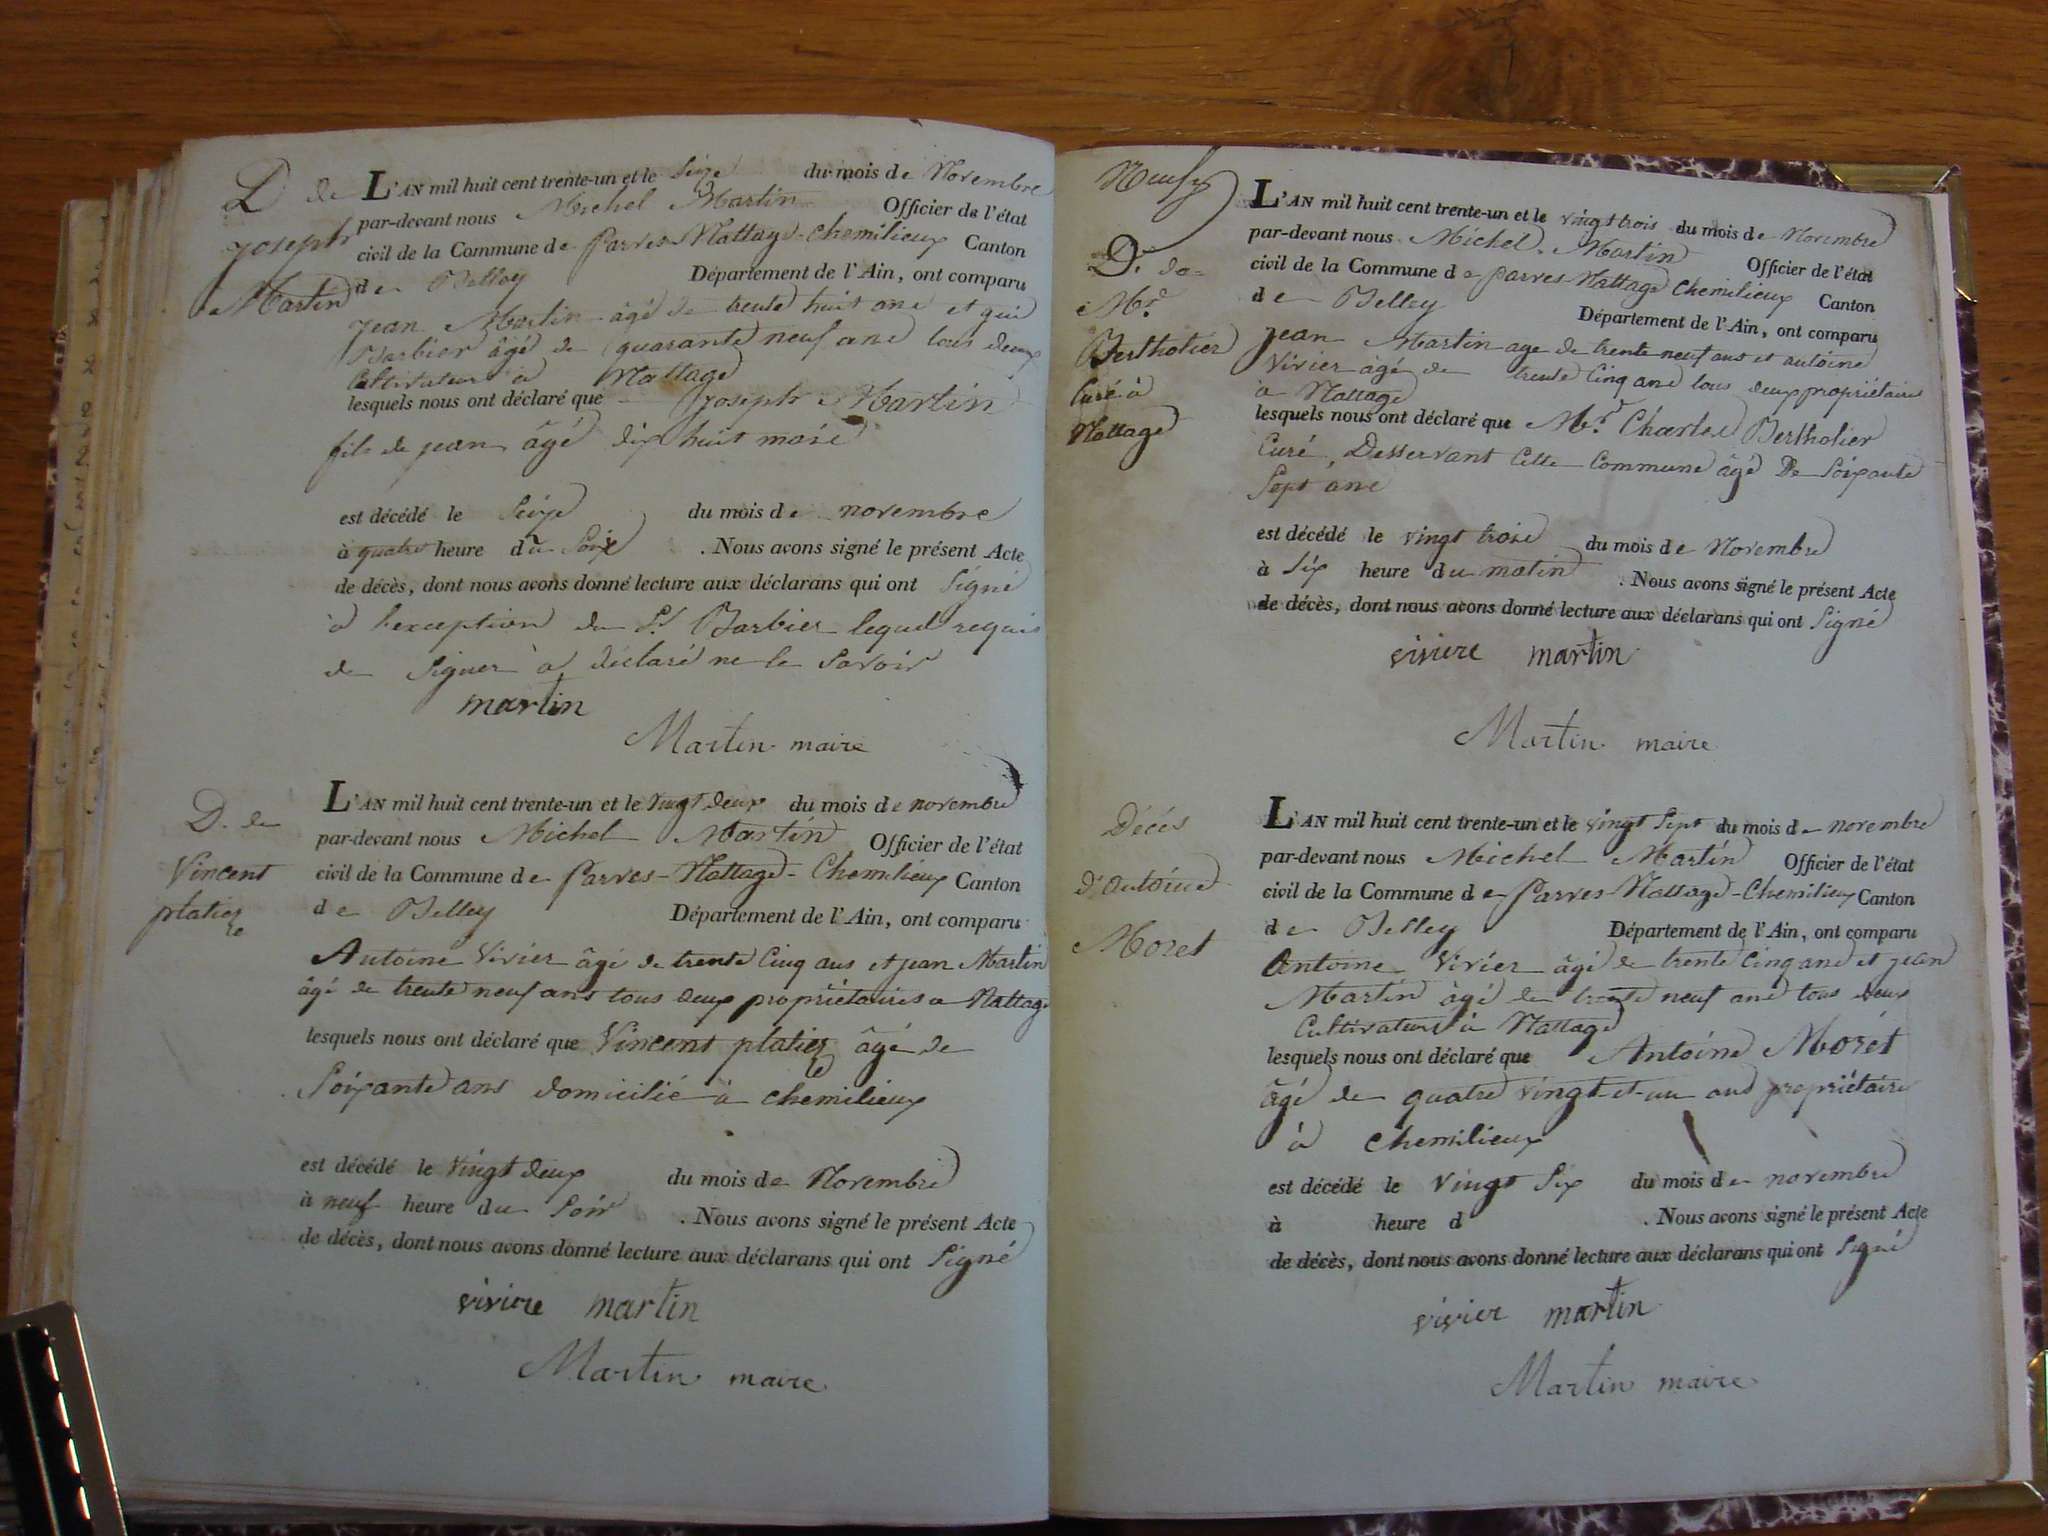 D. de
Joseph
Martin
L'AN mil huit cent trente-un et le Seize du mois de Novembre
par-devant nous Michel Martin Officier de l'état
civil de la Commune de Parves-Nattage-Chemilieux Canton
de Belley Département de l'Ain, ont comparu
Jean Martin âgé de trente huit ans et
Barbier âgé de quarante neuf ans tous deux
Cultivateurs à Nattage
lesquels nous ont déclaré que Joseph Martin
fils de jean âgé dix huit mois
est décédé le Seize du mois de novembre
à quatre heure du Soir . Nous avons signé le présent Acte
de décès, dont nous avons donné lecture aux déclarans qui ont Signé
à l'exception du Sr. Barbier lequel requis
de Signer à déclaré ne le Savoir
martin
Martin maire
D. de
Vincent
platier
L'AN mil huit cent trente-un et le Vingt deux du mois de novembre
par-devant nous Michel Martin Officier de l'état
civil de la Commune de Parves-Nattage-Chemilieux Canton
de Belley Département de l'Ain, ont comparu
Antoine Vivier âgé de trente Cinq ans et jean Martin
âgé de trente neuf ans tous deux propriétaires a Nattage
lesquels nous ont déclaré que Vincent platier âgé de
Soixante ans domicilié à Chemilieux
est décédé le Vingt deux du mois de Novembre
à neuf heure du Soir . Nous avons signé le présent Acte
de décès, dont nous avons donné lecture aux déclarans qui ont Signé
viviere martin
Martin maire
Neuf
D. de
Mr.
Bertholier
Curé à
Nattage
L'AN mil huit cent trente-un et le vingt trois du mois de Novembre
par-devant nous Michel Martin Officier de l'état
civil de la Commune de Parves Nattage Chemilieux Canton
de Belley Département de l'Ain, ont comparu
Jean Martin age de trente neuf ans et antoine
Vivier âgé de trente Cinq ans tous deux propriétaires
à Nattage
lesquels nous ont déclaré que Mr. Charles Bertholier
Curé, Desservant Cette Commune âgé De Soixante
Sept ans
est décédé le vingt trois du mois de Novembre
à Six heure du matin . Nous avons signé le présent Acte
de décès, dont nous avons donné lecture aux déclarans qui ont Signé
viviere martin
Martin maire
Décès
d'Antoine
Moret
L'AN mil huit cent trente-un et le vingt Sept du mois de novembre
par-devant nous Michel Martin Officier de l'état
civil de la Commune de Parves-Nattage-Chemilieux Canton
de Belley Département de l'Ain, ont comparu
Antoine Vivier âgé de trente Cinq ans et jean
Martin âgé de trente neuf ans tous deux
Cultivateurs à Nattage
lesquels nous ont déclaré que Antoine Moret
âgé de quatre vingt-et-un ans propriétaire
à Chemilieux
est décédé le Vingt Six du mois de novembre
à heure d . Nous avons signé le présent Acte
de décès, dont nous avons donné lecture aux déclarans qui ont Signé
vivier martin
Martin maire